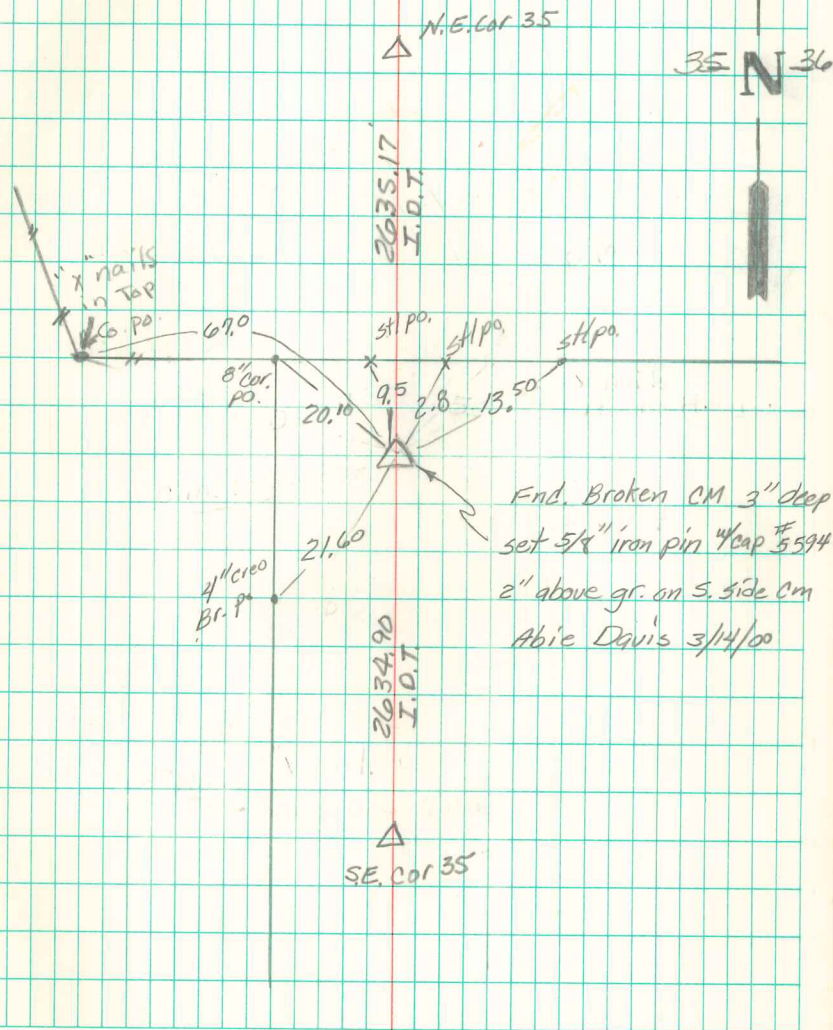 N.E. cor 35
35 N 36
2635.17'
I.D.T.
"x" nails
in Top
Co. po.
67.0
stl po.
stl po.
stl po.
8" cor.
po.
20.10
9.5
2.8
13.50
Fnd. Broken CM 3" deep
set 5/8" iron pin w/cap #5594
2" above gr. on S. side cm
Abie Davis 3/14/00
21.60
4" creo
Br. po
2634.90
I.D.T.
S.E. cor 35